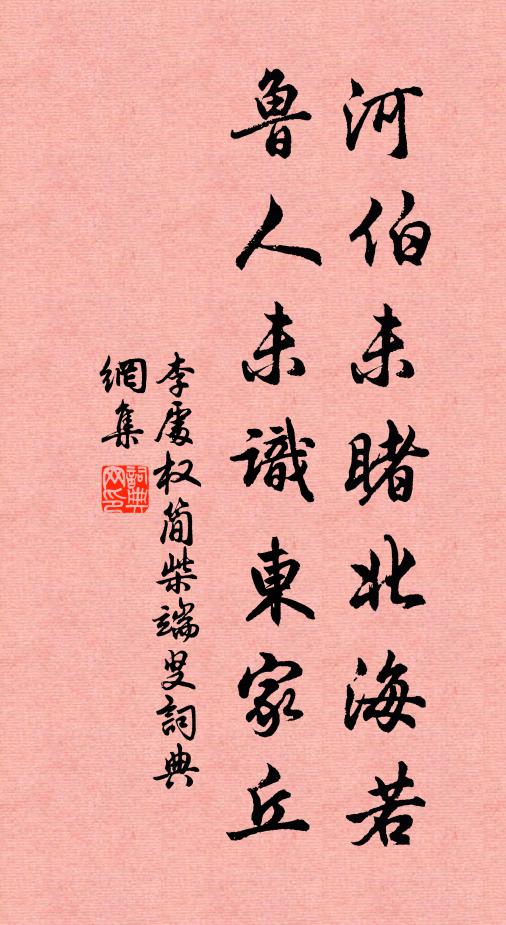 河伯未睹北海若
魯人未識東家丘
李處权简柴端叟詞典
網集
詞典
网印